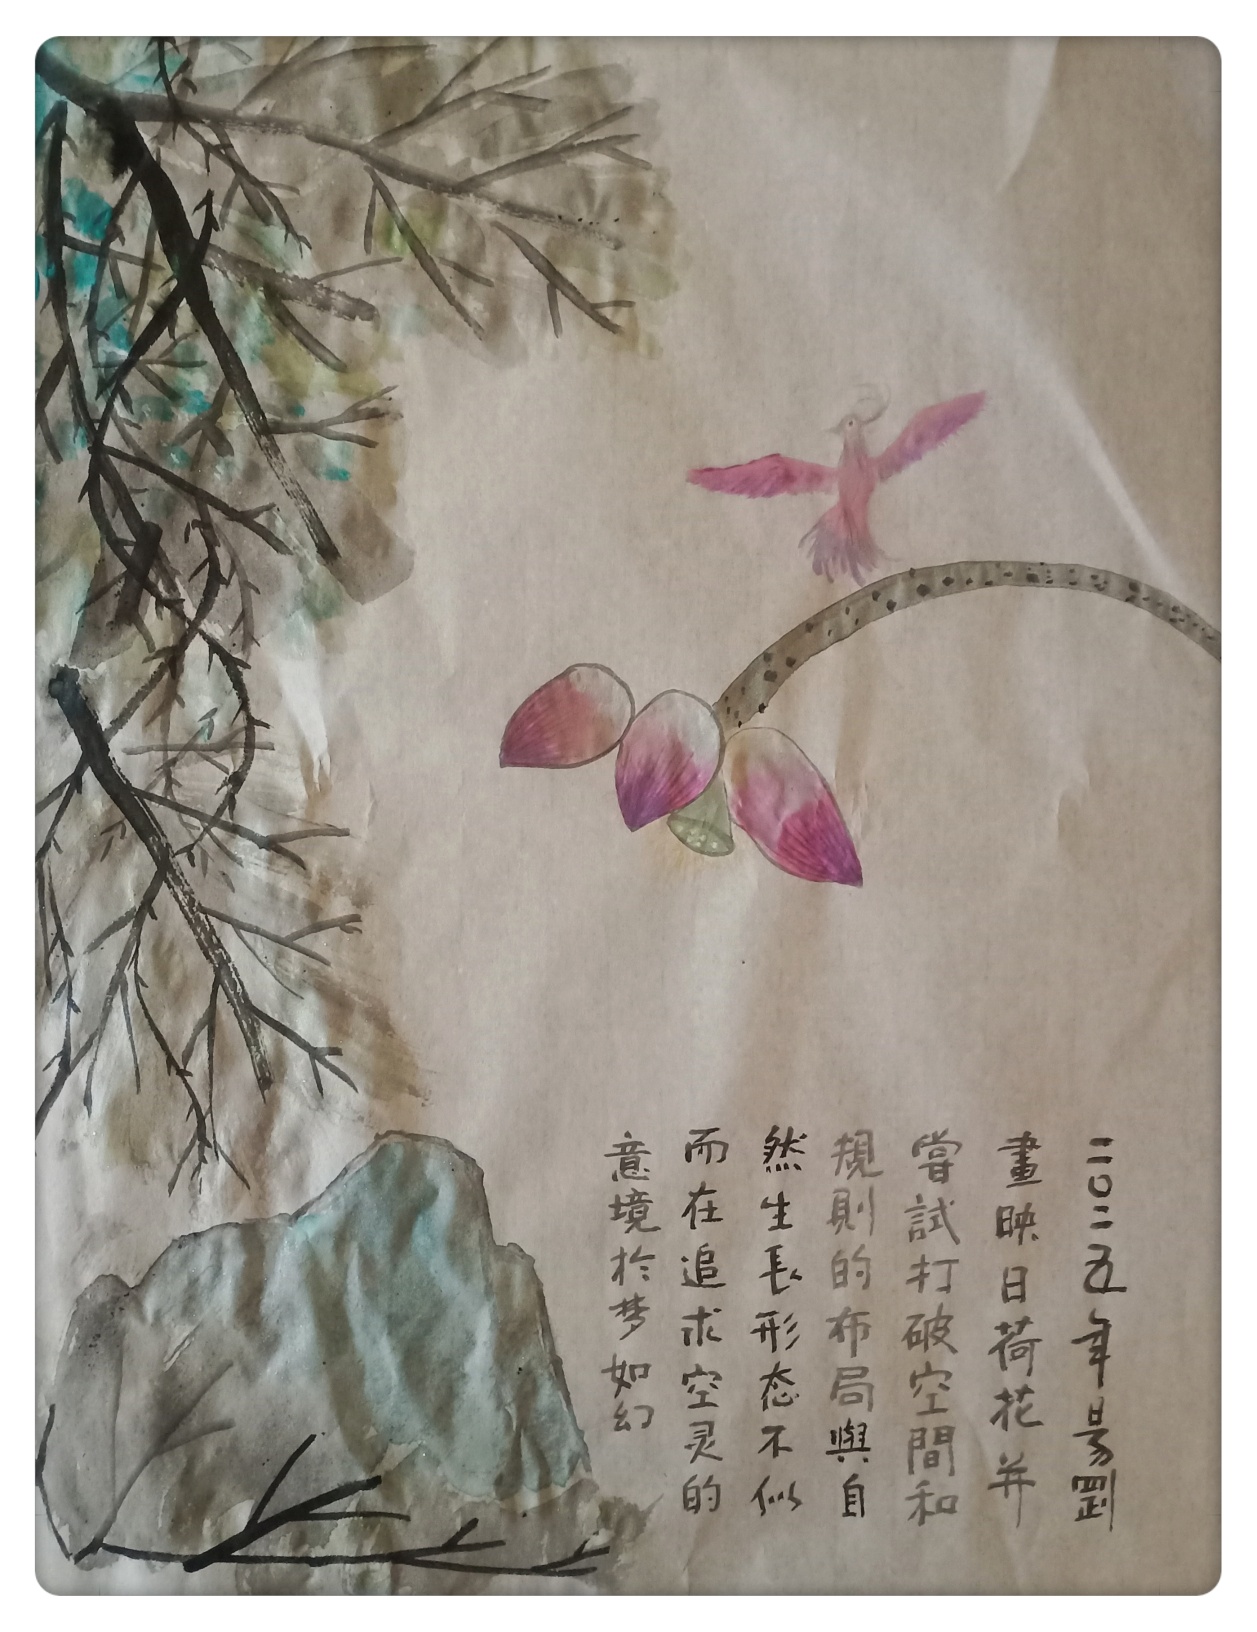 二〇二五年易
畫映日荷花并
嘗試打破空間和
規則的布局與自
然生長形态不似
而在追求空灵的
意境於梦如幻